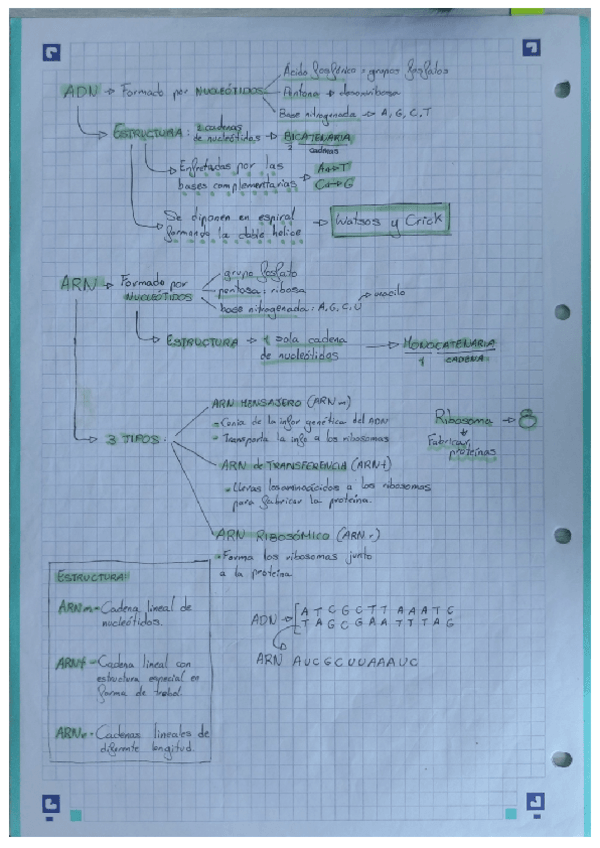 Ácido fosfórico = grupos fosfatos
ADN → Formado por NUCLEÓTIDOS
Pentosa → desoxirribosa
Base nitrogenada → A, G, C, T
ESTRUCTURA: 2 cadenas
de nucleótidos → BICATENARIA
2 cadenas
Enfretadas por las
bases complementarias →
A↔T
C↔G
Se diponen en espiral
formando la doble helice
→ Watsos y Crick
grupo fosfato
ARN → Formado por
NUCLEÓTIDOS
pentosa: ribosa
base nitrogenada: A, G, C, U → uracilo
ESTRUCTURA → 1 sola cadena
de nucleótidos
→ MONOCATENARIA
1 CADENA
ARN MENSAJERO (ARNm)
Copia de la infor genética del ADN
Transporta la info a los ribosomas
Ribosoma → 8
Fabrican
proteínas
3 TIPOS
ARN de TRANSFERENCIA (ARNt)
Llevas los aminoácidos a los ribosomas
para fabricar la proteína.
ARN RIBOSÓMICO (ARNr)
Forma los ribosomas junto
a la proteína
ESTRUCTURA:
ARNm - Cadena lineal de
nucleótidos.
ARNt - Cadena lineal con
estructura especial en
forma de trebol.
ARNr - Cadenas lineales de
diferente longitud.
ADN → A T C G C T T A A A T C
T A G C G A A T T T A G
ARN A U C G C U U A A A U C